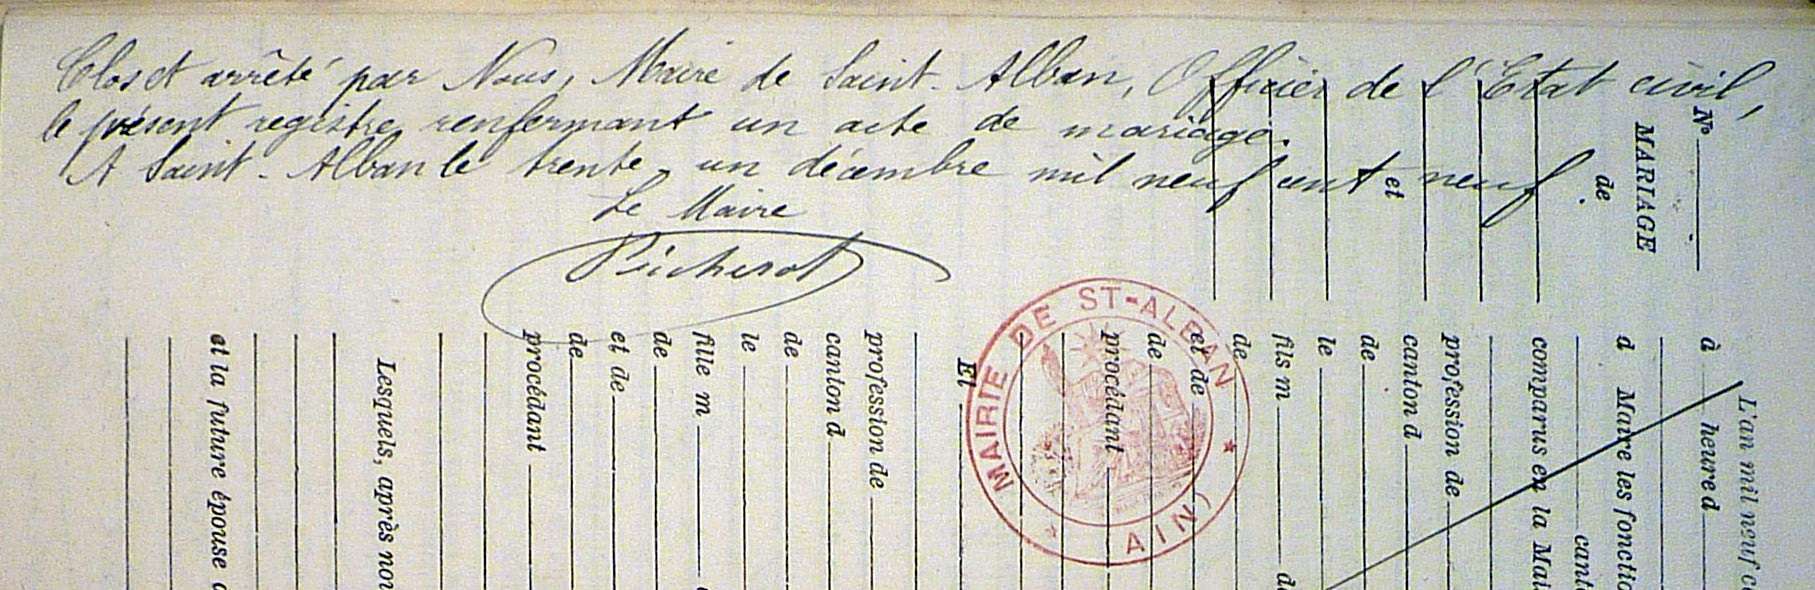 Clos et arrêté par Nous, Maire de Saint-Alban, Officier de l'Etat civil,
le présent registre renfermant un acte de mariage.
A Saint-Alban le trente un décembre mil neuf cent neuf
Le Maire
MAIRIE DE ST-ALBAN
(AIN)
N°
MARIAGE
de
et
L'an mil neuf
à heure d
d Maire les
cant
comparus en la
profession de
canton d
de
le
fils m
de
et de
de
procédant
Et
profession de
canton d
de
le
fille m
de
et de
de
procédant
Lesquels, après
et la future épouse